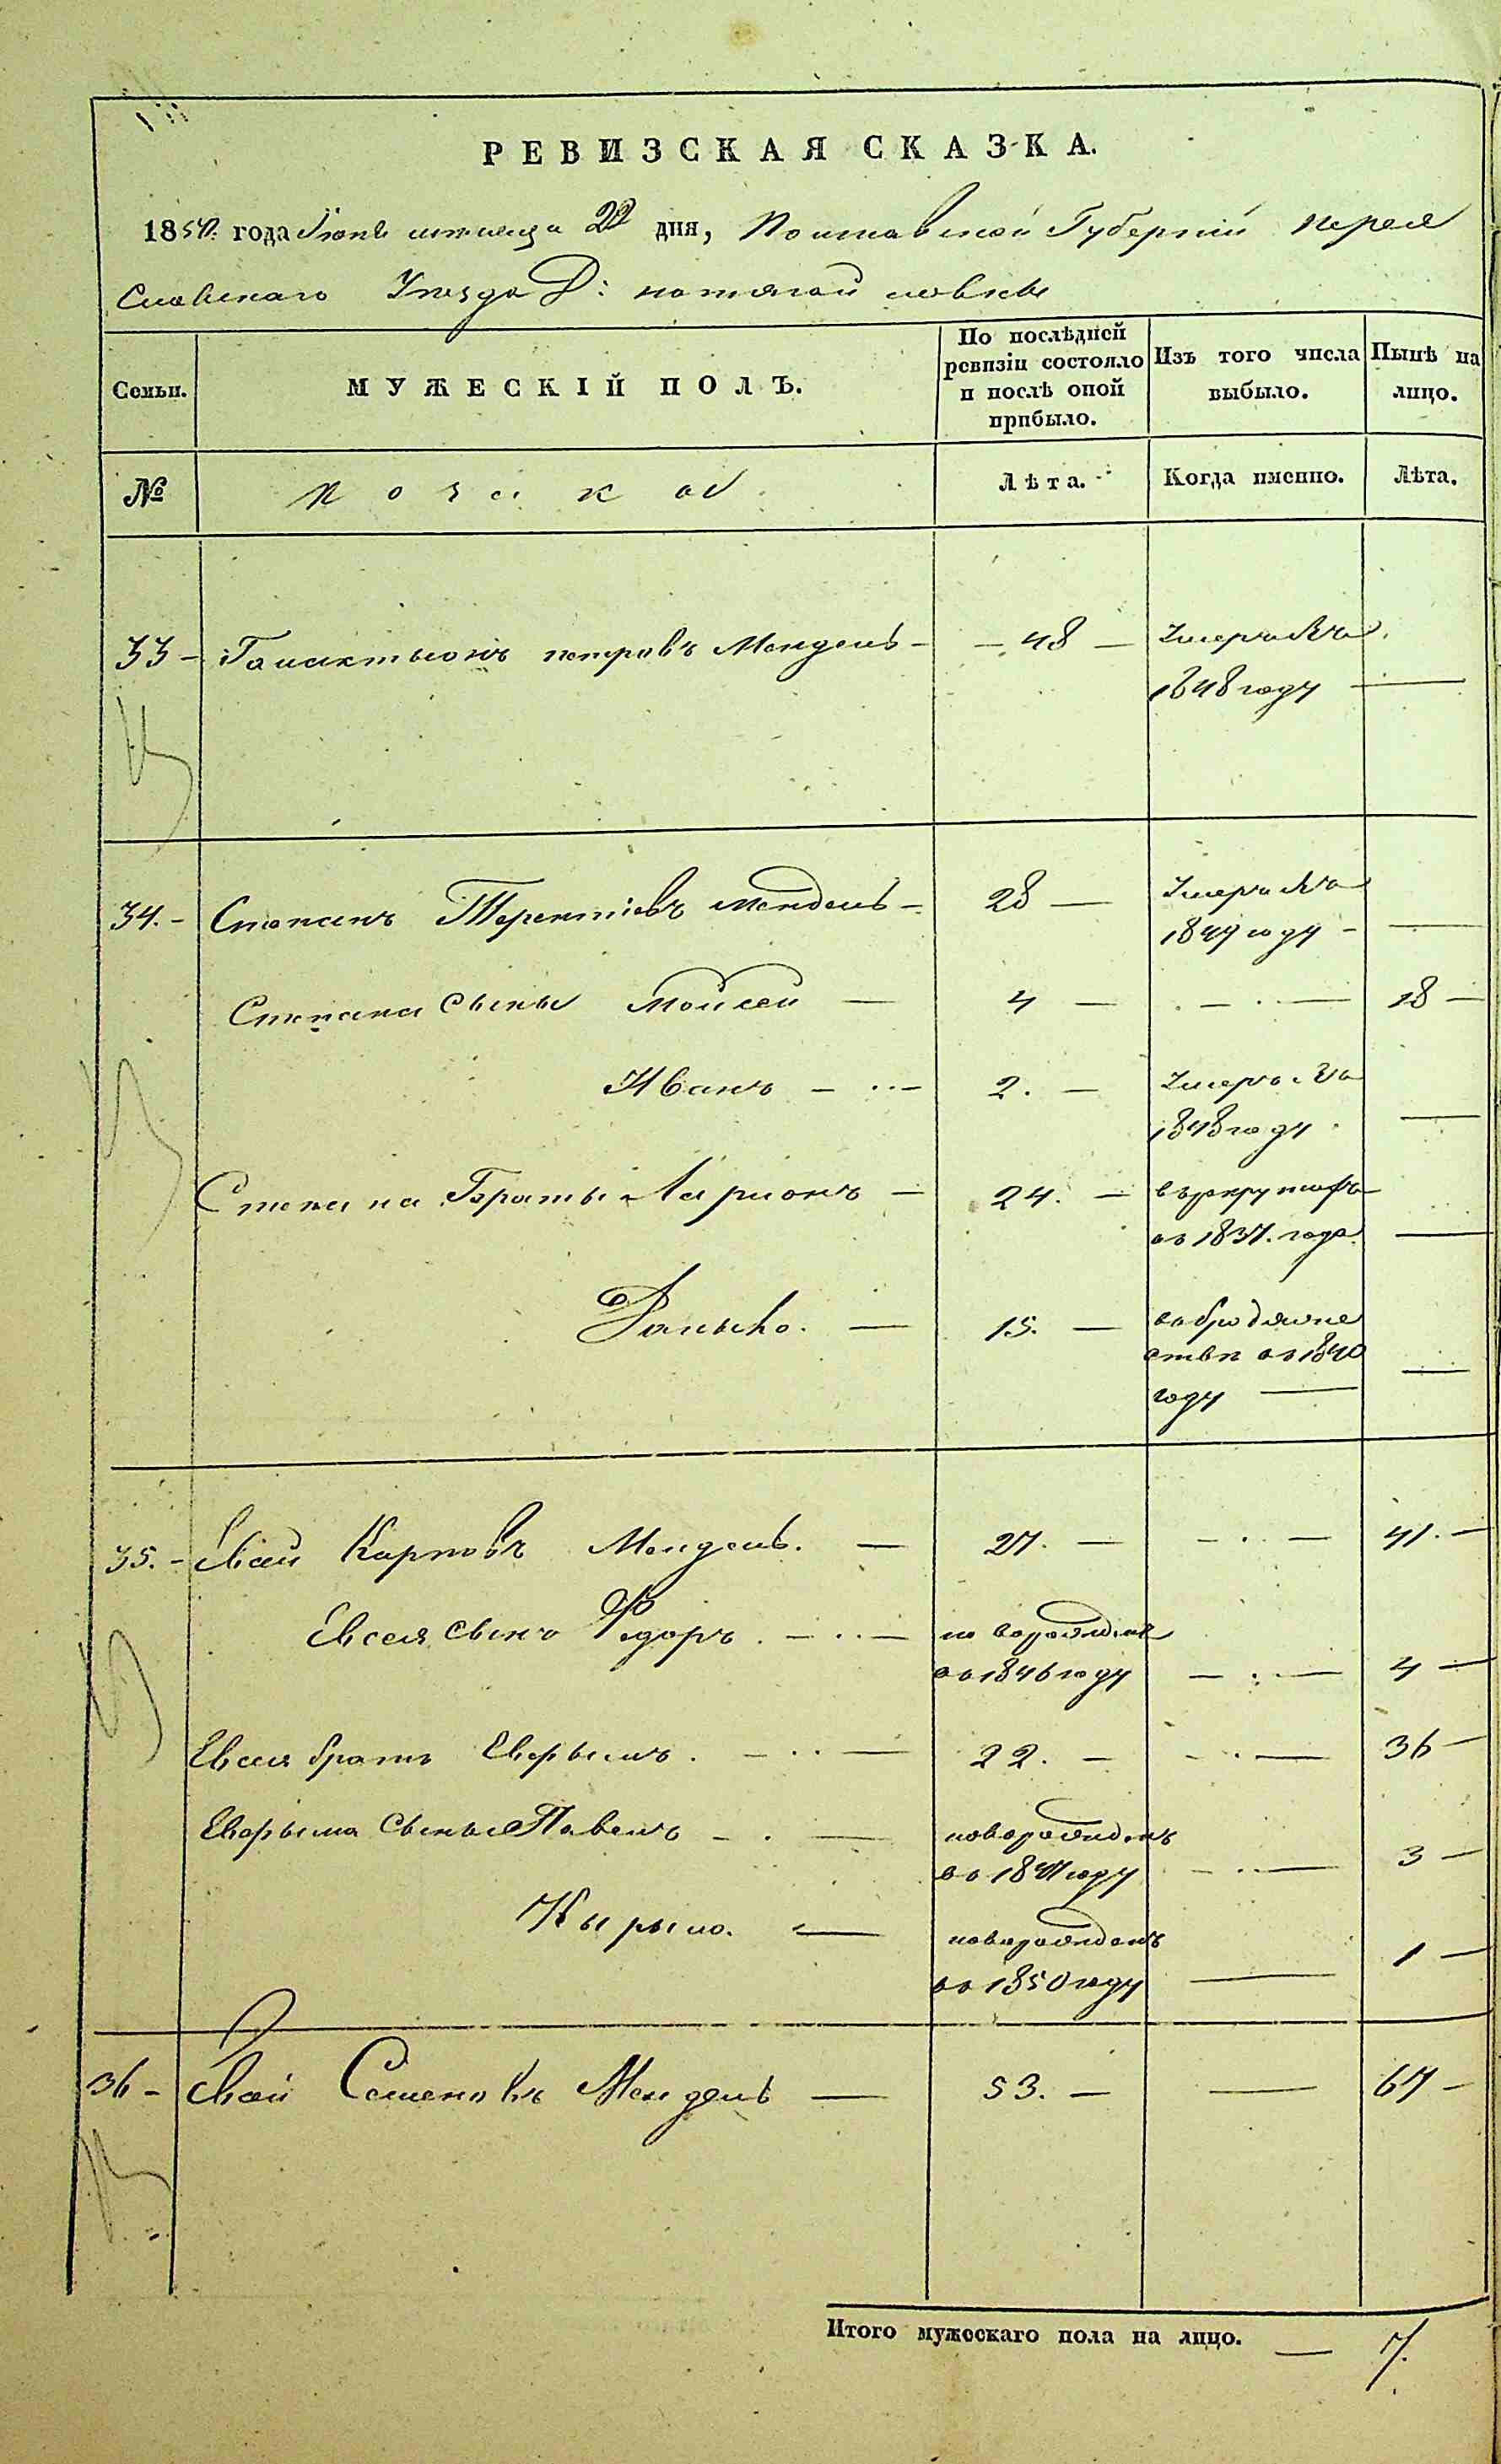 РЕВИЗСКАЯ СКАЗКА.
1850. года Июня месяца 22 дня, Полтавской Губернии Перея
Славскаго Уезда Д:
Семьи.
МУЖЕСКІЙ ПОЛЪ.
По послѣдней ревизіи состояло и послѣ оной прибыло.
Изъ того числа выбыло.
Нынѣ на лицо.
№
Лѣта.
Когда именно.
Лѣта.
33 - Галактыонъ петровъ Мендель - - 48 - Умеръ въ
1848 году —
34. - Степанъ Терентіевъ Мендель - 28 — Умеръ въ
1849 году - —
Степана Сыны Мойсей — 4 — - · — 18 —
Иванъ - ··· 2. — Умеръ въ
1848 году —
Степана Браты Ларионъ — 24. — въ рекруты
въ 1837. года —
Даныло. — 15. —
въ 1840
году — —
35. - Карповъ Мендель. — 27. — - · — 41. —
Евсея сынъ Федоръ. - ·· — новорожденъ
въ 1846 году — : — 4 —
Евсея братъ - ·· — 22. — - · — 36 —
Сыны Павелъ - · — новорожденъ
году - ·· — 3 —
Кырыло. — новорожденъ
въ 1850 году — 1 —
36 - Семеновъ Мендель — 53. — — 67 —
Итого мужескаго пола на лицо. — 7.